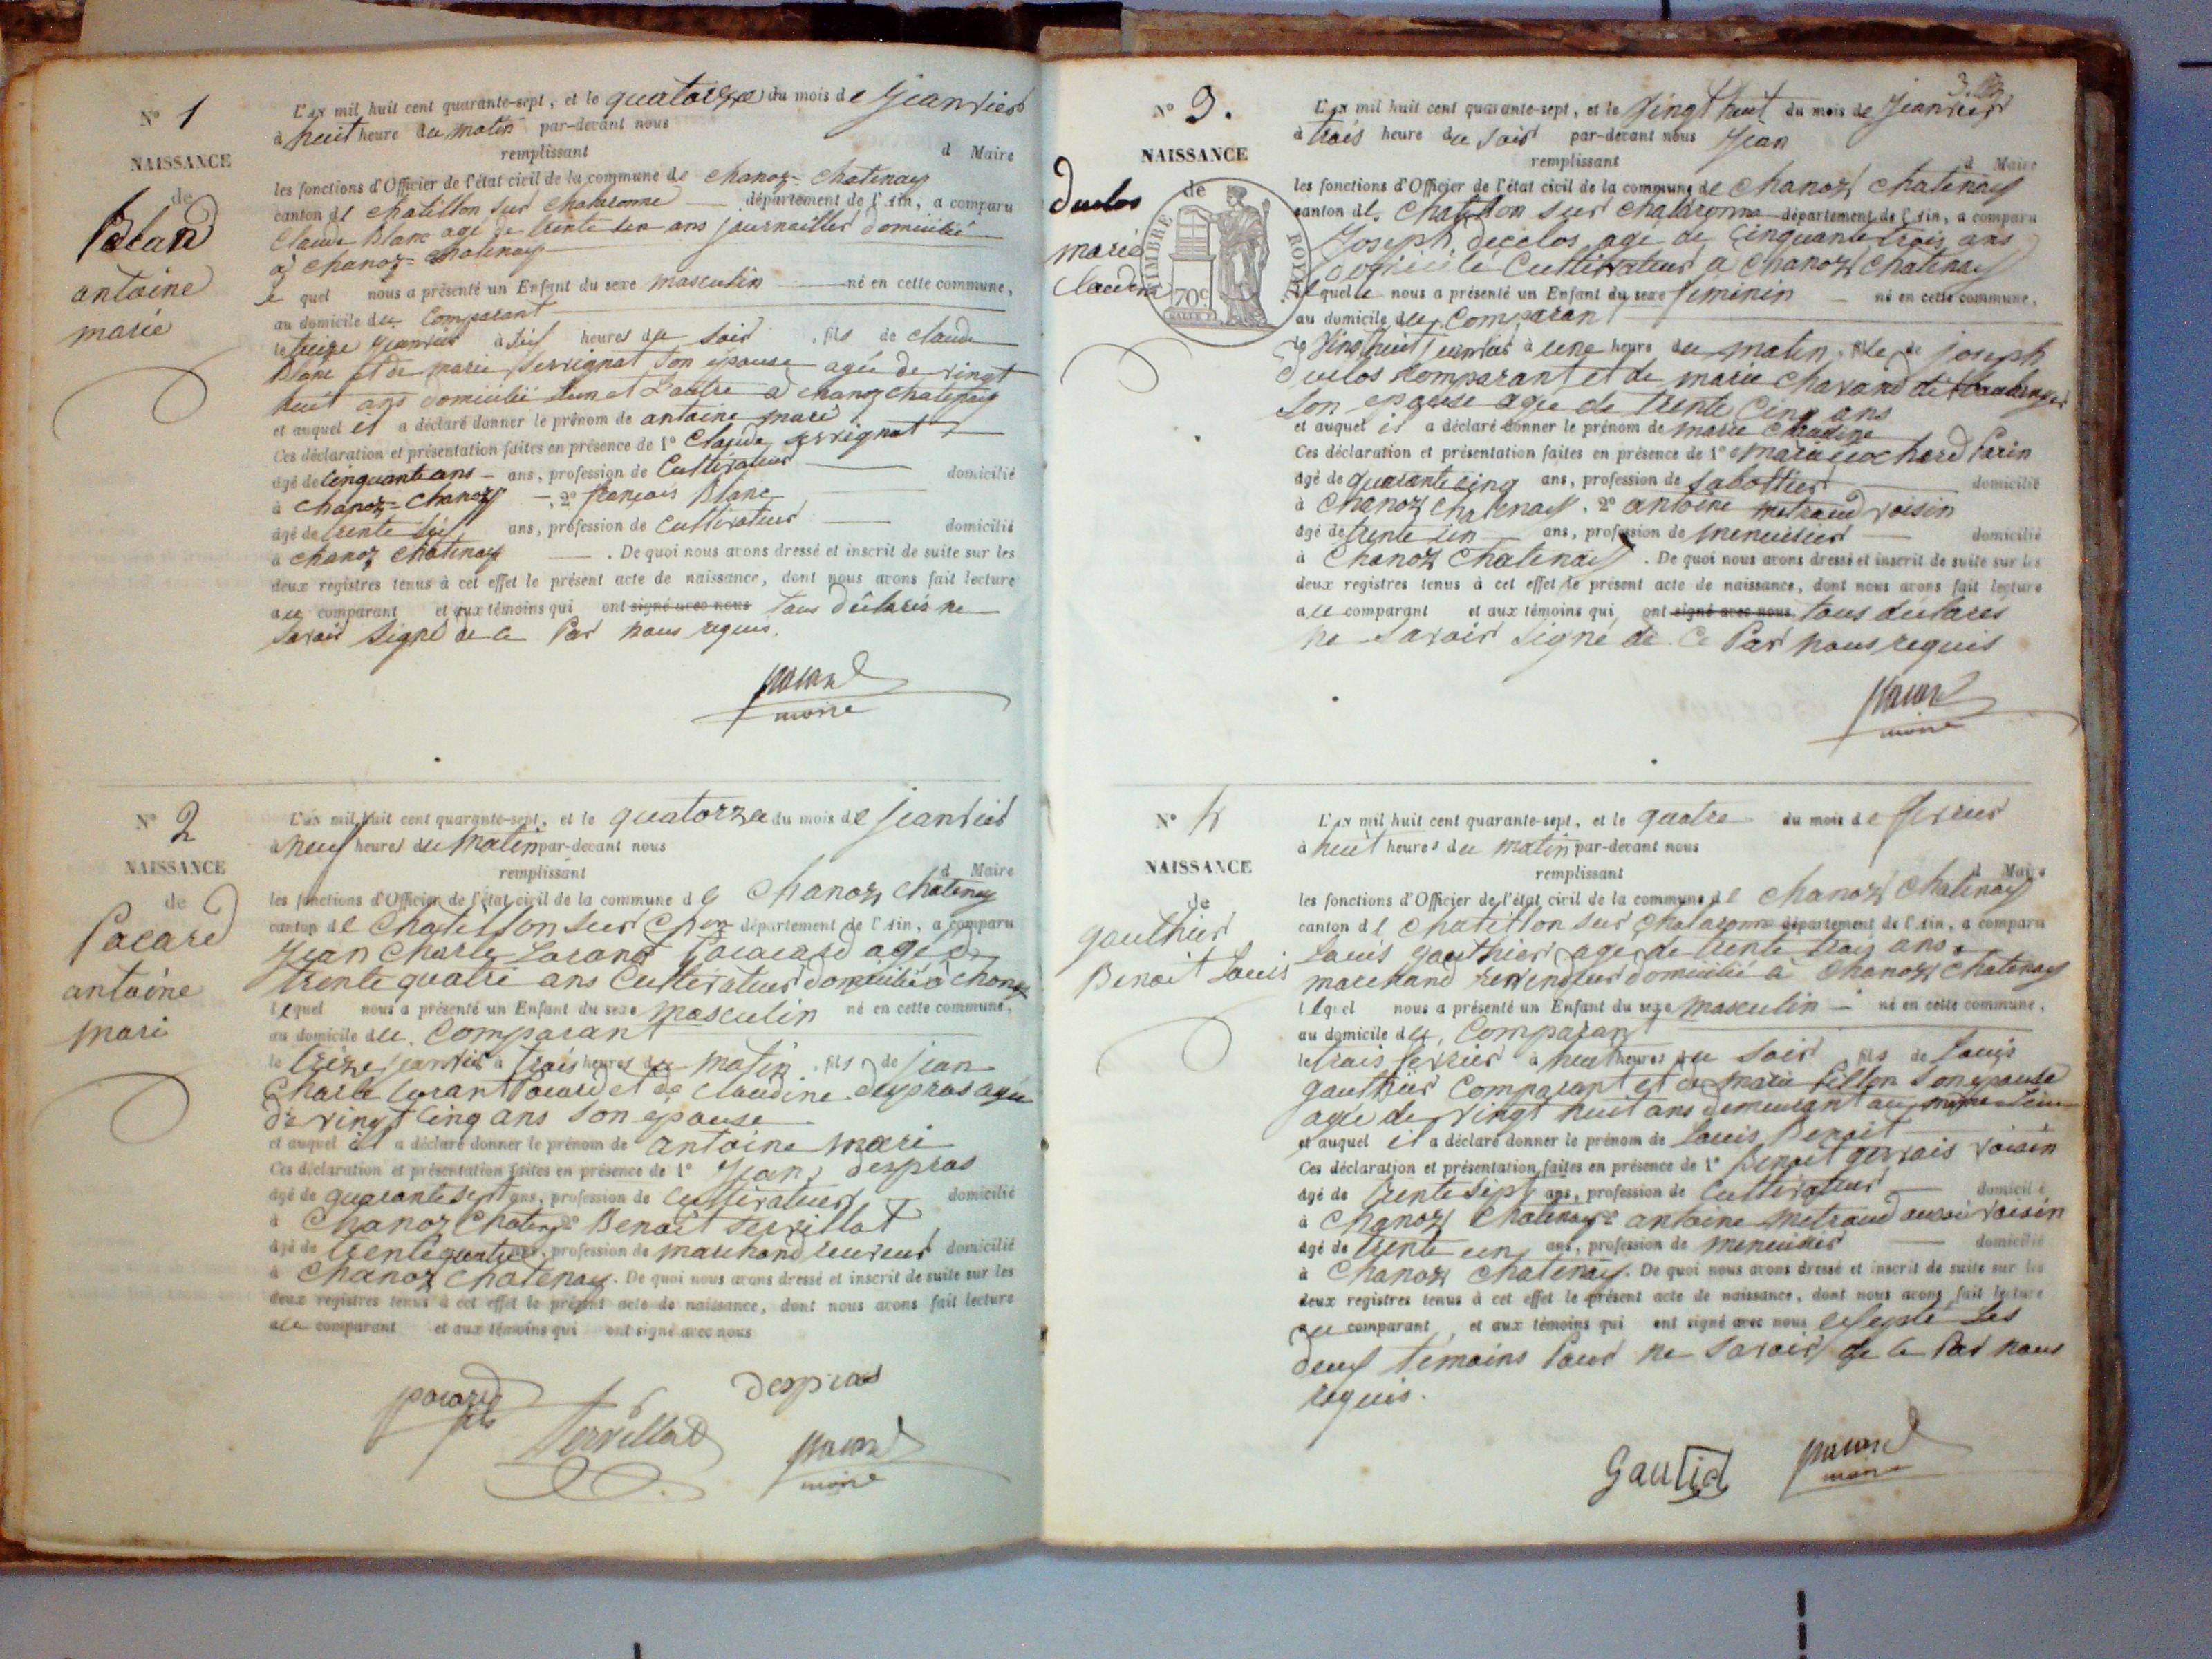 N° 1
NAISSANCE
de
Bland
antoine
marie
L'an mil huit cent quarante-sept, et le quatorze du mois de Jeanvier
à huit heure du matin par-devant nous
remplissant d Maire
les fonctions d'Officier de l'état civil de la commune de chanoz-chatenay
canton de chatillon sur chalaronne département de l'Ain, a comparu
Claude Blanc agé de trente un ans journailler domicilié
a chanoz-chatenay
le quel nous a présenté un Enfant du sexe masculin né en cette commune,
au domicile du Comparant
le treize Jeanvier à six heures du soir, fils de claude
Blanc et de marie servignat son epouse agée de vingt
huit ans domicilié l'un et l'autre a chanoz chatenay
et auquel il a déclaré donner le prénom de antoine marie
Ces déclaration et présentation faites en présence de 1° Claude servignat
âgé de Cinquante ans ans, profession de Cultivateur domicilié
à chanoz-chanoz, 2° françois Blanc
âgé de trente six ans, profession de Cultivateur domicilié
à chanoz chatenay. De quoi nous avons dressé et inscrit de suite sur les
deux registres tenus à cet effet le présent acte de naissance, dont nous avons fait lecture
au comparant et aux témoins qui ont signé avec nous tous déclarés ne
savoir signé de ce Par nous requis.
pacard
maire
N° 2
NAISSANCE
de
Pacard
antoine
mari
L'an mil huit cent quarante-sept, et le quatorze du mois de jeanvier
à neuf heures du Matin par-devant nous
remplissant d Maire
les fonctions d'Officier de l'état civil de la commune de Chanoz chatenay
canton de Chatillon sur Chon département de l'Ain, a comparu
Jean Charle Lorant Pacard agé de
trente quatre ans Cultivateur domicilié à chanoz
lequel nous a présenté un Enfant du sexe masculin né en cette commune,
au domicile du Comparant
le treize jeanvier à trois heures du matin, fils de jean
Charle Lorant Pacard et de Claudine despras agée
de vingt Cinq ans son epouse
et auquel il a déclaré donner le prénom de antoine mari
Ces déclaration et présentation faites en présence de 1° Jean despras
âgé de quarante sept ans, profession de Cultivateur domicilié
à Chanoz Chatenay 2° Benoit servillat
âgé de trente quatre ans, profession de marchand domicilié
à Chanoz Chatenay. De quoi nous avons dressé et inscrit de suite sur les
deux registres tenus à cet effet le présent acte de naissance, dont nous avons fait lecture
au comparant et aux témoins qui ont signé avec nous
pacard
fils
despras
Servillat
pacard
maire
3.
N° 3.
NAISSANCE
de
duclos
marie
Claudine
TIMBRE ROYAL
70c
L'an mil huit cent quarante-sept, et le vingt huit du mois de Jeanvier
à trois heure du soir par-devant nous Jean
remplissant d Maire
les fonctions d'Officier de l'état civil de la commune de chanoz chatenay
canton de Chatillon sur chalaronne département de l'Ain, a comparu
Joseph ducclos agé de Cinquante trois ans
domicilié Cultivateur a chanoz chatenay
le quel nous a présenté un Enfant du sexe feminin né en cette commune,
au domicile du Comparant
le Vingt huit jeanvier à une heure du matin, fille de joseph
duclos Comparant et de marie chavand
son epouse agée de trente Cinq ans
et auquel il a déclaré donner le prénom de marie Claudine
Ces déclaration et présentation faites en présence de 1°
âgé de quarante cinq ans, profession de sabottier domicilié
à Chanoz chatenay, 2° antoine metraud voisin
âgé de trente un ans, profession de menuisier domicilié
à Chanoz Chatenay. De quoi nous avons dressé et inscrit de suite sur les
deux registres tenus à cet effet le présent acte de naissance, dont nous avons fait lecture
au comparant et aux témoins qui ont signé avec nous tous declarés
ne savoir signé de Ce Par nous requis
pacard
maire
N° 4
NAISSANCE
de
gauthier
Benoit Louis
L'an mil huit cent quarante-sept, et le quatre du mois de fevrier
à huit heures du matin par-devant nous
remplissant d Maire
les fonctions d'Officier de l'état civil de la commune de chanoz Chatenay
canton de Chatillon sur Chalaronne département de l'Ain, a comparu
Louis gauthier agé de trente trois ans
marchand revendeur domicilié a Chanoz Chatenay
lequel nous a présenté un Enfant du sexe masculin né en cette commune,
au domicile du Comparant
le trois fevrier à huit heures du soir, fils de Louis
gauthier Comparant et de marie fillon son epouse
agée de vingt huit ans demeurant au même Lieu
et auquel il a déclaré donner le prénom de Louis Benoit
Ces déclaration et présentation faites en présence de 1° Benoit gervais voisin
âgé de trente sept ans, profession de Cultivateur domicilié
à Chanoz Chatenay 2° antoine metraud aussi voisin
âgé de trente un ans, profession de menuisier domicilié
à Chanoz Chatenay. De quoi nous avons dressé et inscrit de suite sur les
deux registres tenus à cet effet le présent acte de naissance, dont nous avons fait lecture
au comparant et aux témoins qui ont signé avec nous exsepté Les
deux temoins Pour ne savoir de ce Par nous
requis.
Gautié
pacard
maire